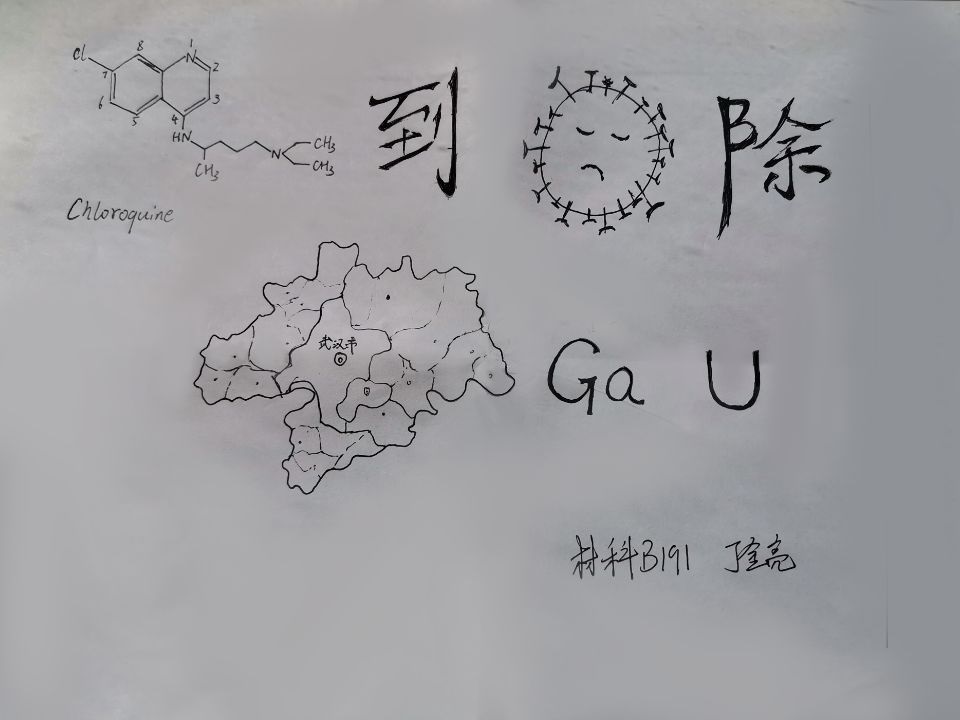 Cl 8 1 N 2 7 6 5 4 3
HN N CH3
CH3 CH3
Chloroquine
到 除
武汉市
Ga U
材科B191 丁奎亮